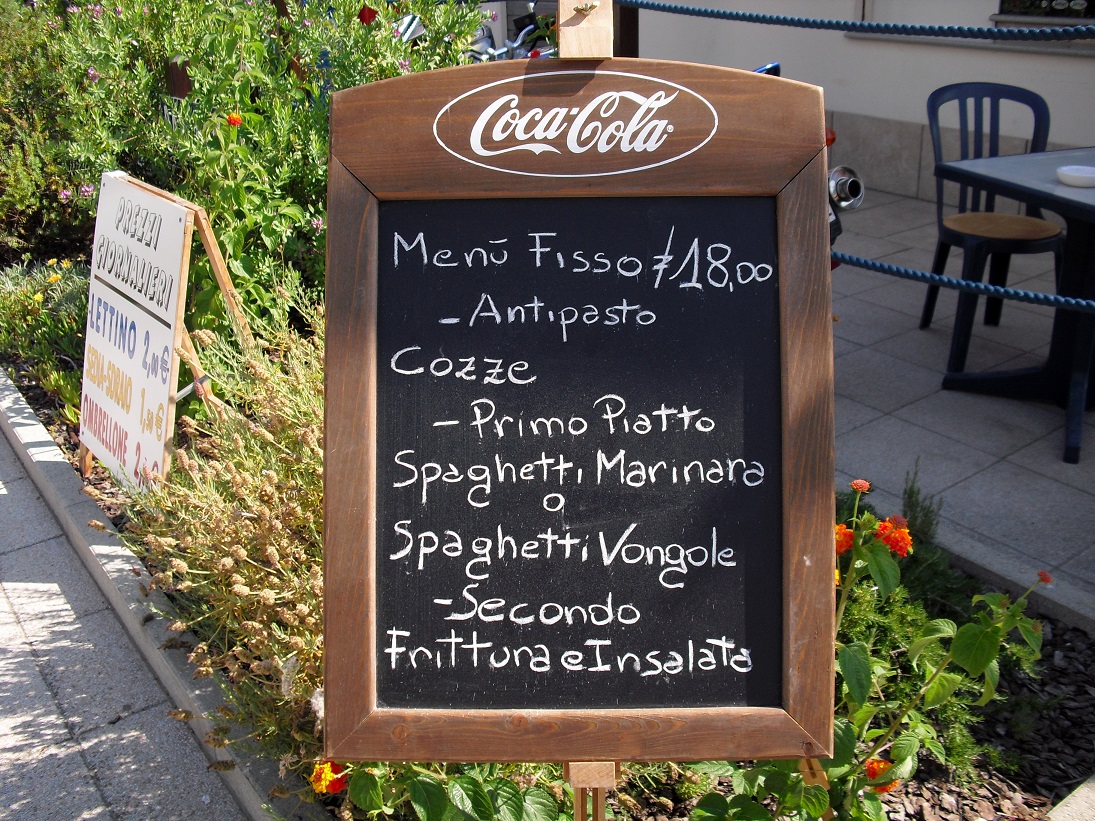 Coca-Cola
Menū Fisso €18,00
- Antipasto
Cozze
- Primo Piatto
Spaghetti Marinara
o
Spaghetti Vongole
- Secondo
Frittura e Insalata
PREZZI
GIORNALIERI
LETTINO 2,00€
SEDIA-SDRAIO 1,50€
OMBRELLONE